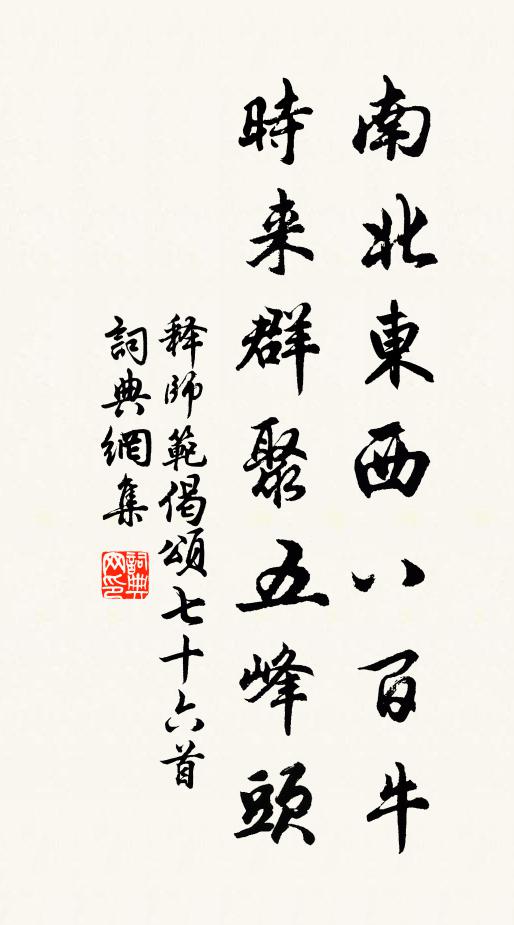 南北東西八百牛
時来群聚五峰頭
释師範偈頌七十六首
詞典網集
詞典网印